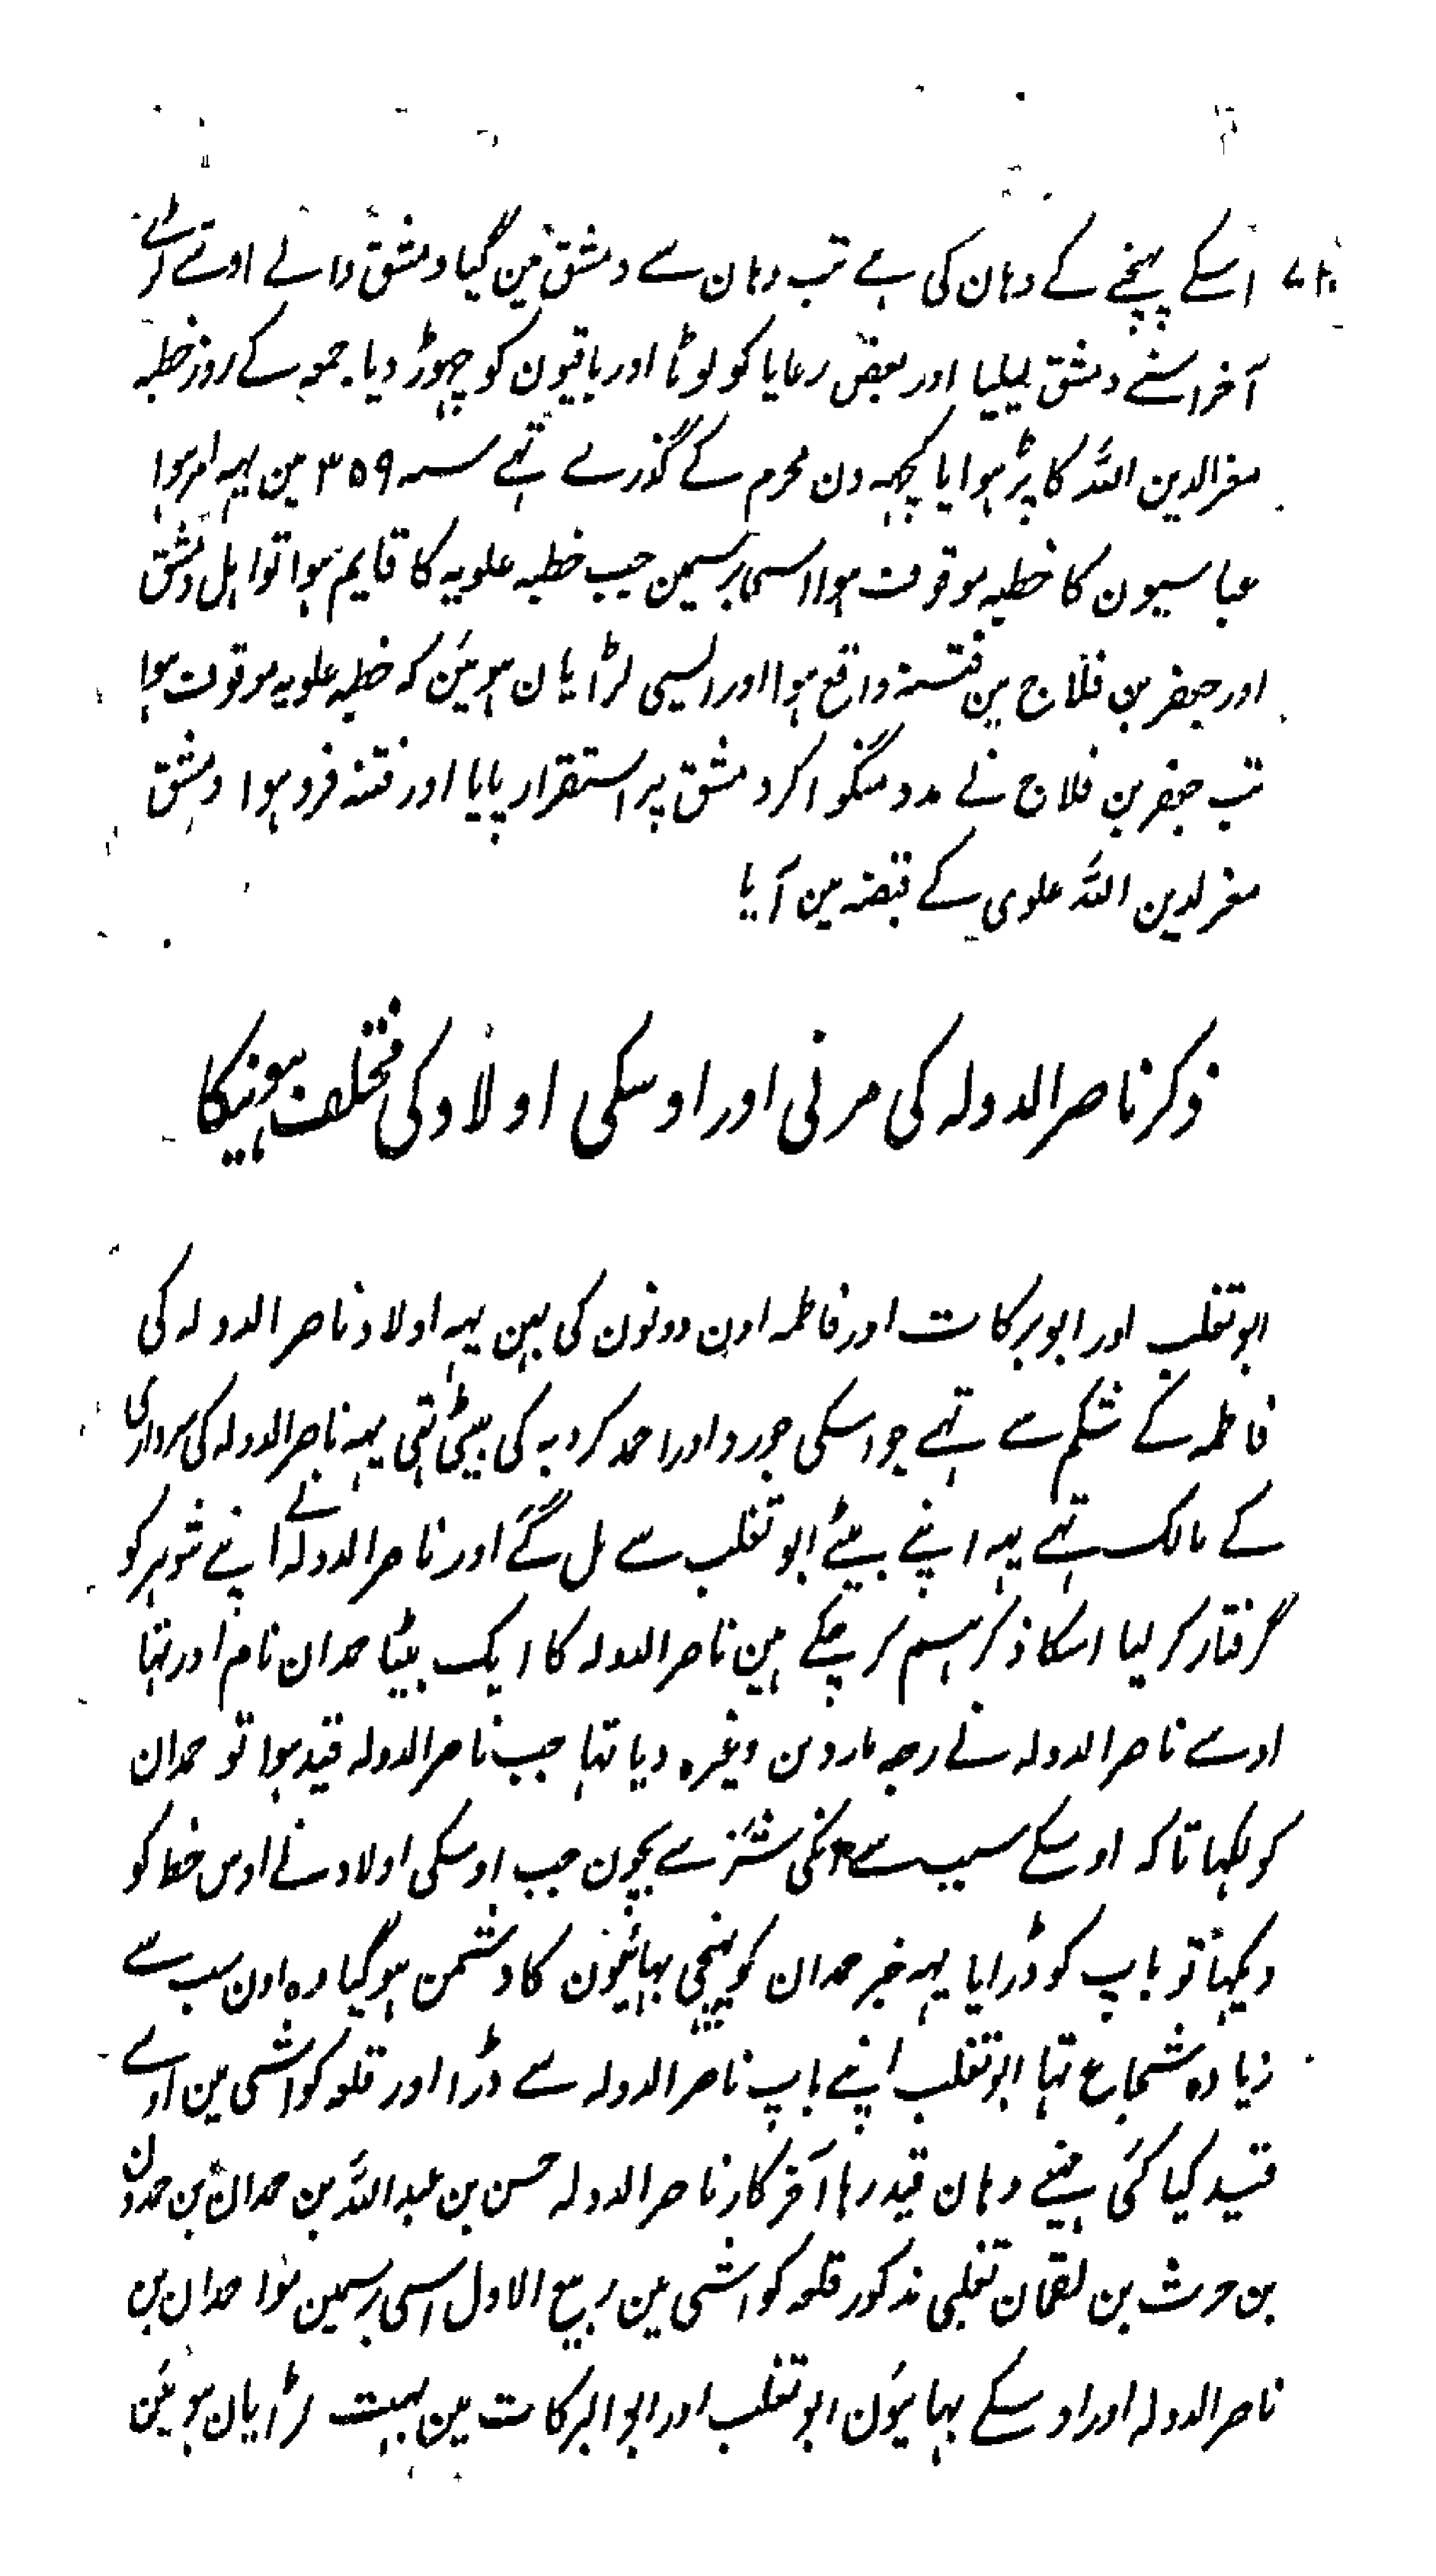 اسکے پہنچنے کے وہان کی ہے تب وہان سے دمشق مین گیا دمشق والے اوسے لڑے
آخر اسنے دمشق لیلیا اور بعض رعایا کو لوٹا اور باقیون کو چہوڑ دیا۔ جمعہ کے روز خطبہ
معز الدین اللہ کا پڑہوایا کچہہ دن محرم کے گذرے تہے سنہ ۳۵۹ مین یہہ امر ہوا
عباسیون کا خطبہ موقوف ہوا اسی برسمین جب خطبہ علویہ کا قایم ہوا تو اہل دمشق
اور جعفر بن فلاج مین فتنہ واقع ہوا اور ایسی لڑایان ہوئین کہ خطبہ علویہ موقوف ہوا
تب جعفر بن فلاج نے مدد منگوا کر دمشق پر استقرار پایا اور فتنہ فرو ہوا دمشق
معز لدین اللہ علوی کے قبضہ مین آیا
ذکر ناصر الدولہ کی مرنی اور اوسکی اولاد کی مختلف ہونیکا
ابو تغلب اور ابو برکات اور فاطمہ اون دونون کی بہن یہہ اولاد ناصر الدولہ کی
فاطمہ کے شکم سے تہے جو اسکی جورو اور احمد کردیہ کی بیٹی تہی یہہ ناصر الدولہ کی سرداری
کے مالک تہے یہہ اپنے بیٹے ابو تغلب سے مل گے اور ناصر الدولہ نے اپنے شوہر کو
گرفتار کر لیا اسکا ذکر ہم کر چکے ہین ناصر الدولہ کا ایک بیٹا حمدان نام اور تہا
اوسے ناصر الدولہ نے رحبہ ماردین وغیرہ دیا تہا جب ناصر الدولہ قید ہوا تو حمدان
کو لکہا تا کہ اوسکے سبب سے انکی شر سے بچون جب اوسکی اولاد نے اوس خط کو
دیکہا تو باپ کو ڈرایا یہہ خبر حمدان کو پہنچی بہائیون کا دشمن ہو گیا وہ اون سب سے
زیادہ شجاع تہا ابو تغلب اپنے باپ ناصر الدولہ سے ڈرا اور قلعہ کواشی مین اوسے
قید کیا کئی مہینے وہان قید رہا آخر کار ناصر الدولہ حسن بن عبد اللہ بن حمدان بن حمدون
بن حرث بن لقمان تغلبی مذکور قلعہ کواشی مین ربیع الاول اسی برسمین موا حمدان بن
ناصر الدولہ اور اوسکے بہائیون ابو تغلب اور ابو البرکات مین بہت لڑایان ہوئین